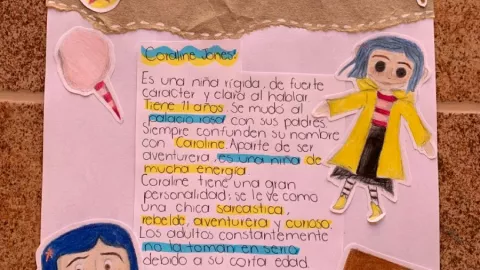 Coraline Jones:
Es una niña rígida, de fuerte
carácter y clara al hablar.
Tiene 11 años. Se mudó al
palacio rosa con sus padres.
Siempre confunden su nombre
con Caroline. Aparte de ser
aventurera, es una niña de
mucha energía.
Coraline tiene una gran
personalidad; se le ve como
una chica sarcastica,
rebelde, aventurera y curiosa.
Los adultos constantemente
no la toman en serio
debido a su corta edad.